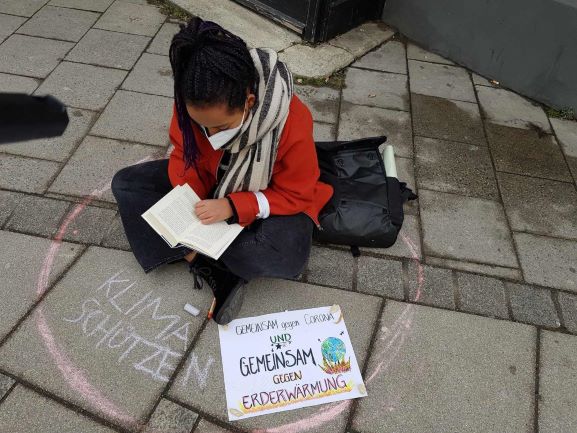 KLIMA
SCHÜTZEN
GEMEINSAM gegen CORONA
UND
GEMEINSAM
GEGEN
ERDERWÄRMUNG